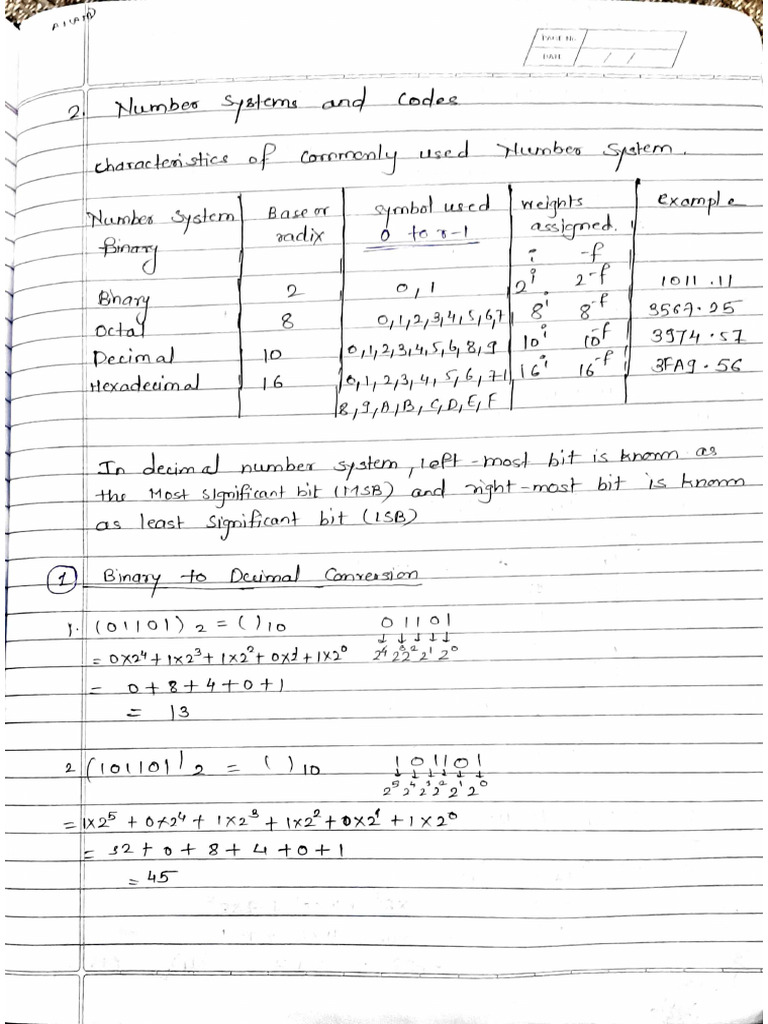 PAGE No.
DATE / /
2. Number Systems and Codes
characteristics of commonly used Number System.
Number System | Base or radix | symbol used 0 to r-1 | weights assigned. | example
Binary | | | i -f
Binary | 2 | 0, 1 | 2^i 2^-f | 1011.11
Octal | 8 | 0,1,2,3,4,5,6,7 | 8^i 8^-f | 3567.25
Decimal | 10 | 0,1,2,3,4,5,6,8,9 | 10^i 10^-f | 3974.57
Hexadecimal | 16 | 0,1,2,3,4,5,6,7 | 16^i 16^-f | 3FA9.56
8,9,A,B,C,D,E,F
In decimal number system, left-most bit is known as
the Most Significant bit (MSB) and right-most bit is known
as least Significant bit (LSB)
1 Binary to Decimal Conversion
1. (01101)2 = ( )10 0 1 1 0 1
= 0×2^4 + 1×2^3 + 1×2^2 + 0×2^1 + 1×2^0 2^4 2^3 2^2 2^1 2^0
= 0 + 8 + 4 + 0 + 1
= 13
2 (101101)2 = ( )10 1 0 1 1 0 1
2^5 2^4 2^3 2^2 2^1 2^0
= 1×2^5 + 0×2^4 + 1×2^3 + 1×2^2 + 0×2^1 + 1×2^0
= 32 + 0 + 8 + 4 + 0 + 1
= 45